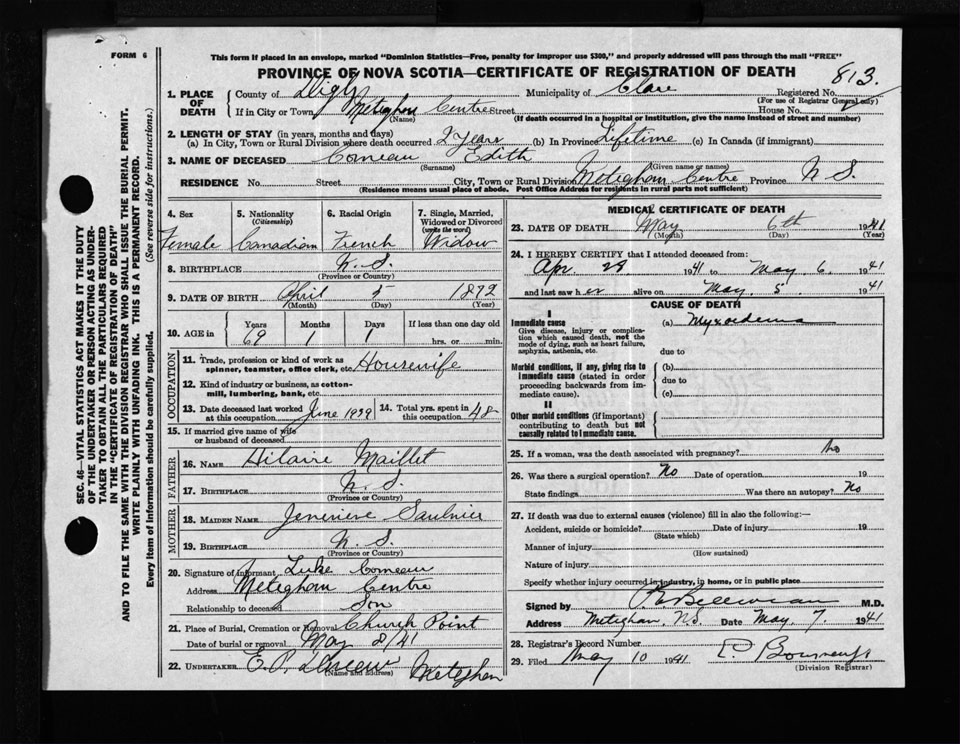 FORM 6
This form if placed in an envelope, marked "Dominion Statistics—Free, penalty for improper use $300," and properly addressed will pass through the mail "FREE"
PROVINCE OF NOVA SCOTIA—CERTIFICATE OF REGISTRATION OF DEATH
813.
1. PLACE OF DEATH
County of Digby Municipality of Clare Registered No.
(For use of Registrar General only)
If in City or Town Meteghan Centre Street House No.
(Name) (If death occurred in a hospital or institution, give the name instead of street and number)
2. LENGTH OF STAY (in years, months and days)
(a) In City, Town or Rural Division where death occurred 2 Years (b) In Province Lifetime (c) In Canada (if immigrant)
3. NAME OF DECEASED Comeau Edith
(Surname) (Given name or names)
RESIDENCE No. Street City, Town or Rural Division Meteghan Centre Province N S.
(Residence means usual place of abode. Post Office Address for residents in rural parts not sufficient)
4. Sex
Female
5. Nationality
(Citizenship)
Canadian
6. Racial Origin
French
7. Single, Married, Widowed or Divorced
(write the word)
Widow
8. BIRTHPLACE N. S.
(Province or Country)
9. DATE OF BIRTH April 5 1872
(Month) (Day) (Year)
10. AGE in
Years Months Days If less than one day old
69 1 1 hrs. or min.
OCCUPATION
11. Trade, profession or kind of work as spinner, teamster, office clerk, etc. Housewife
12. Kind of industry or business, as cotton-mill, lumbering, bank, etc.
13. Date deceased last worked at this occupation June 1939
14. Total yrs. spent in this occupation 48
15. If married give name of wife or husband of deceased
FATHER
16. NAME Hilaire Maillet
17. BIRTHPLACE N. S.
(Province or Country)
MOTHER
18. MAIDEN NAME Jenevieve Saulnier
19. BIRTHPLACE N. S.
(Province or Country)
20. Signature of informant Luke Comeau
Address Meteghan Centre
Relationship to deceased Son
21. Place of Burial, Cremation or Removal Church Point
Date of burial or removal May 8/41
22. UNDERTAKER Meteghan
(Name and address)
MEDICAL CERTIFICATE OF DEATH
23. DATE OF DEATH May 6th 1941
(Month) (Day) (Year)
24. I HEREBY CERTIFY that I attended deceased from:
Apr. 28 1941 to May 6. 1941
and last saw her alive on May 5 1941
CAUSE OF DEATH
I
Immediate cause (a) Myxoedema
Give disease, injury or complication which caused death, not the mode of dying, such as heart failure, asphyxia, asthenia, etc.
due to
Morbid conditions, if any, giving rise to immediate cause (stated in order proceeding backwards from immediate cause).
(b)
due to
(c)
II
Other morbid conditions (if important) contributing to death but not causally related to immediate cause.
25. If a woman, was the death associated with pregnancy? No
26. Was there a surgical operation? No Date of operation 19
State findings Was there an autopsy? No
27. If death was due to external causes (violence) fill in also the following:—
Accident, suicide or homicide? Date of injury 19
(State which)
Manner of injury
(How sustained)
Nature of injury
Specify whether injury occurred in industry, in home, or in public place
Signed by M.D.
Address Meteghan, N.S. Date May 7, 1941
28. Registrar's Record Number
29. Filed May 10 1941
(Division Registrar)
SEC. 46—VITAL STATISTICS ACT MAKES IT THE DUTY OF THE UNDERTAKER OR PERSON ACTING AS UNDERTAKER TO OBTAIN ALL THE PARTICULARS REQUIRED IN THE "CERTIFICATE OF REGISTRATION OF DEATH"
AND TO FILE THE SAME WITH THE DIVISION REGISTRAR WHO SHALL ISSUE THE BURIAL PERMIT.
WRITE PLAINLY WITH UNFADING INK. THIS IS A PERMANENT RECORD.
Every item of information should be carefully supplied. (See reverse side for instructions.)